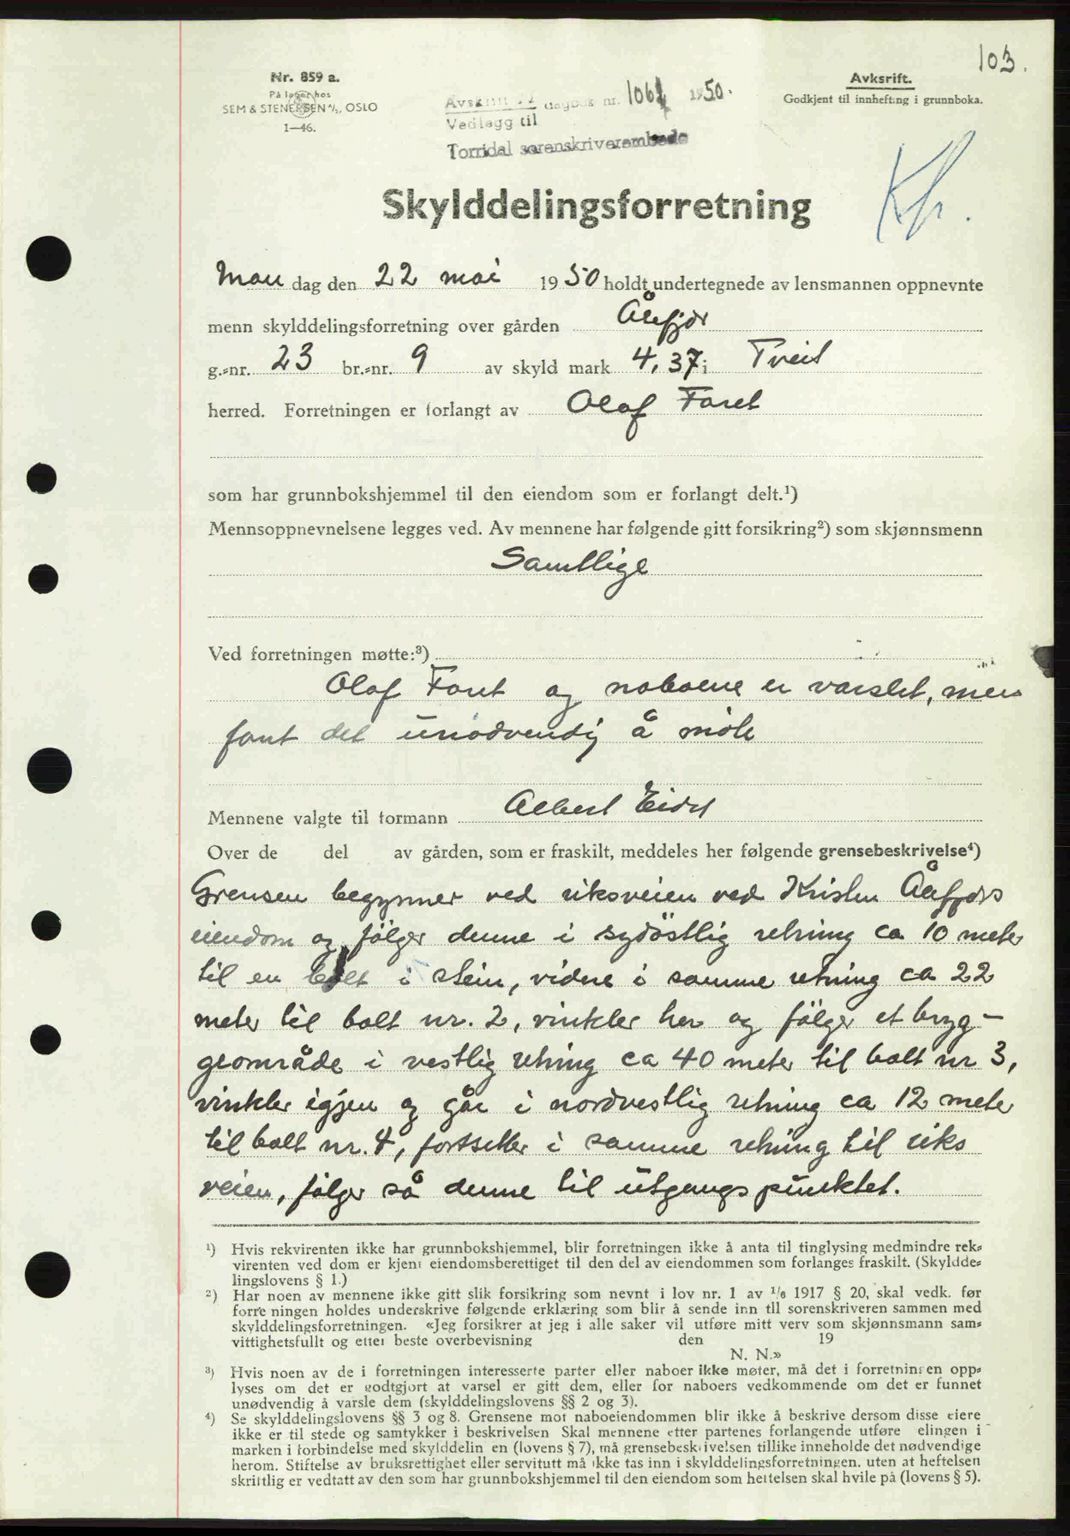 103.
Nr. 859 a.
På lager hos
SEM & STENERSEN A/S, OSLO
1—46.
dagbok nr. 1950.
Vedlegg til
Torridal sorenskriverembede
Avskrift.
Godkjent til innhefting i grunnboka.
Kfr.
Skylddelingsforretning
Man dag den 22 mai 1950 holdt undertegnede av lensmannen oppnevnte
menn skylddelingsforretning over gården Ålefjær
g.-nr. 23 br.-nr. 9 av skyld mark 4,37 i Tveit
herred. Forretningen er forlangt av Olaf Foret
som har grunnbokshjemmel til den eiendom som er forlangt delt.¹)
Mennsoppnevnelsene legges ved. Av mennene har følgende gitt forsikring²) som skjønnsmenn
Samtlige
Ved forretningen møtte:³)
Olaf Foret og naboene er varslet, men
fant det unödvendig å möte
Mennene valgte til formann Albert Eidet
Over de del av gården, som er fraskilt, meddeles her følgende grensebeskrivelse⁴)
Grensen begynner ved riksveien ved Kristen Ålefjærs
eiendom og fölger denne i sydöstlig retning ca 10 meter
til en bolt i stein, videre i samme retning ca 22
meter til bolt nr. 2, vinkler her og fölger et byg-
geområde i vestlig retning ca 40 meter til bolt nr 3,
vinkler igjen og går i nordvestlig retning ca 12 meter
til bolt nr. 4, fortsetter i samme retning til riks
veien, fölger så denne til utgangspunktet.
¹) Hvis rekvirenten ikke har grunnbokshjemmel, blir forretningen ikke å anta til tinglysing medmindre rek-
virenten ved dom er kjent eiendomsberettiget til den del av eiendommen som forlanges fraskilt. (Skyldde-
lingslovens § 1.)
²) Har noen av mennene ikke gitt slik forsikring som nevnt i lov nr. 1 av 1/6 1917 § 20, skal vedk. før
forretningen holdes underskrive følgende erklæring som blir å sende inn til sorenskriveren sammen med
skylddelingsforretningen. «Jeg forsikrer at jeg i alle saker vil utføre mitt verv som skjønnsmann sam-
vittighetsfullt og etter beste overbevisning den 19
N. N.»
³) Hvis noen av de i forretningen interesserte parter eller naboer ikke møter, må det i forretningen opp-
lyses om det er godtgjort at varsel er gitt dem, eller for naboers vedkommende om det er funnet
unødvendig å varsle dem (skylddelingslovens §§ 2 og 3).
⁴) Se skylddelingslovens §§ 3 og 8. Grensene mot naboeiendommen blir ikke å beskrive dersom disse eiere
ikke er til stede og samtykker i beskrivelsen Skal mennene etter partenes forlangende utføre elingen i
marken i forbindelse med skylddelin en (lovens § 7), må grensebeskrivelsen tillike inneholde det nødvendige
herom. Stiftelse av bruksrettighet eller servitutt må ikke tas inn i skylddelingsforretningen, uten at heftelsen
skriftlig er vedtatt av den som har grunnbokshjemmel til den eiendom som heftelsen skal hvile på (lovens § 5).